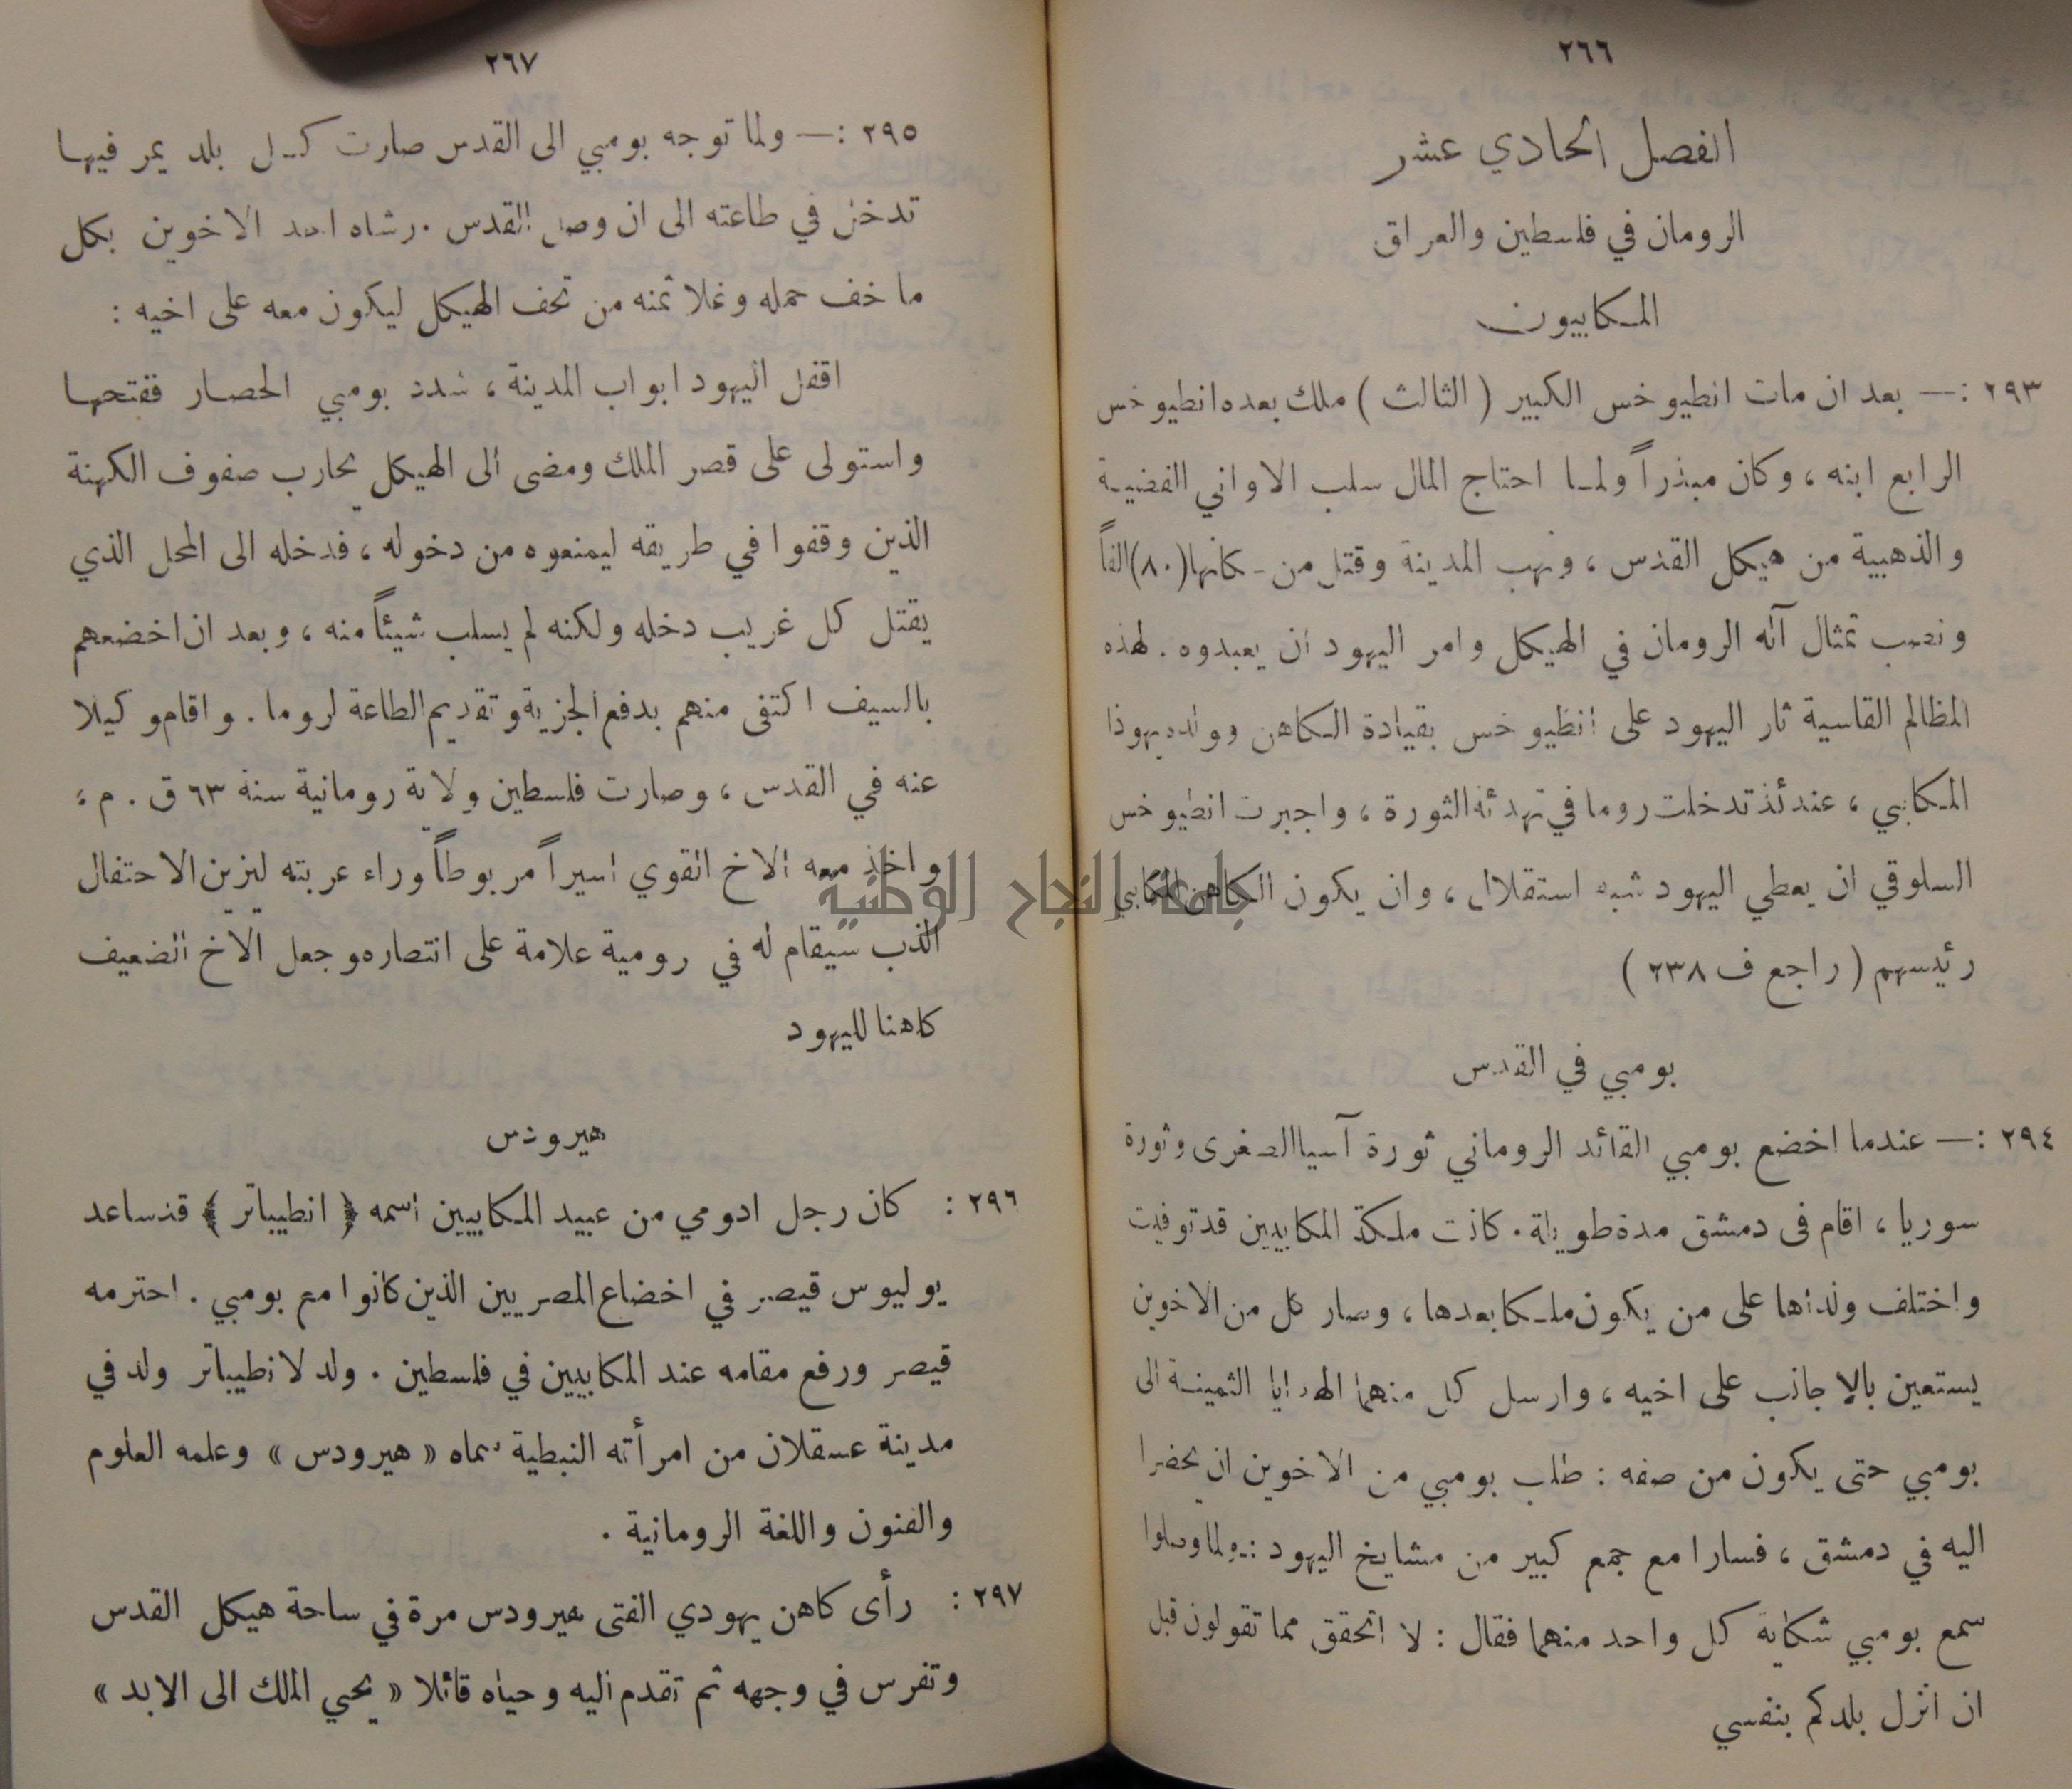 ٢٦٦
الفصل الحادي عشر
الرومان في فلسطين والعراق
المكابيون
٢٩٣ :— بعد ان مات انطيوخس الكبير ( الثالث ) ملك بعده انطيوخس
الرابع ابنه ، وكان مبذراً ولما احتاج المال سلب الاواني الفضية
والذهبية من هيكل القدس ، ونهب المدينة وقتل من سكانها (٨٠) الفاً
ونصب تمثال آله الرومان في الهيكل وامر اليهود ان يعبدوه . لهذه
المظالم القاسية ثار اليهود على انطيوخس بقيادة الكاهن وولده يهوذا
المكابي ، عندئذ تدخلت روما في تهدئة الثورة ، واجبرت انطيوخس
السلوقي ان يعطي اليهود شبه استقلال ، وان يكون الكاهن المكابي
رئيسهم ( راجع ف ٢٣٨ )
بومبي في القدس
٢٩٤ :— عندما اخضع بومبي القائد الروماني ثورة آسيا الصغرى وثورة
سوريا ، اقام فى دمشق مدة طويلة . كانت ملكة المكابيين قد توفيت
واختلف ولداها على من يكون ملكا بعدها ، وصار كل من الاخوين
يستعين بالاجانب على اخيه ، وارسل كل منهما الهدايا الثمينة الى
بومبي حتى يكون من صفه : طلب بومبي من الاخوين ان يحضرا
اليه في دمشق ، فسارا مع جمع كبير من مشايخ اليهود :— ولما وصلوا
سمع بومبي شكاية كل واحد منهما فقال : لا اتحقق مما تقولون قبل
ان انزل بلدكم بنفسي
٢٦٧
٢٩٥ :— ولما توجه بومبي الى القدس صارت كل بلد يمر فيها
تدخل في طاعته الى ان وصل القدس . رشاه احد الاخوين بكل
ما خف حمله وغلا ثمنه من تحف الهيكل ليكون معه على اخيه :
اقفل اليهود ابواب المدينة ، شدد بومبي الحصار ففتحها
واستولى على قصر الملك ومضى الى الهيكل يحارب صفوف الكهنة
الذين وقفوا في طريقه ليمنعوه من دخوله ، فدخله الى المحل الذي
يقتل كل غريب دخله ولكنه لم يسلب شيئاً منه ، وبعد ان اخضعهم
بالسيف اكتفى منهم بدفع الجزية وتقديم الطاعة لروما . واقام وكيلا
عنه في القدس ، وصارت فلسطين ولاية رومانية سنة ٦٣ ق . م ،
واخذ معه الاخ القوي اسيراً مربوطاً وراء عربته ليزين الاحتفال
الذب سيقام له في رومية علامة على انتصاره وجعل الاخ الضعيف
كاهنا لليهود
هيرودس
٢٩٦ : كان رجل ادومي من عبيد المكابيين اسمه ﴿ انطيباتر ﴾ قد ساعد
يوليوس قيصر في اخضاع المصريين الذين كانوا مع بومبي . احترمه
قيصر ورفع مقامه عند المكابيين في فلسطين . ولد لانطيباتر ولد في
مدينة عسقلان من امرأته النبطية سماه « هيرودس » وعلمه العلوم
والفنون واللغة الرومانية .
٢٩٧ : رأى كاهن يهودي الفتى هيرودس مرة في ساحة هيكل القدس
وتفرس في وجهه ثم تقدم اليه وحياه قائلا « يحيي الملك الى الابد »
جامعة النجاح الوطنية